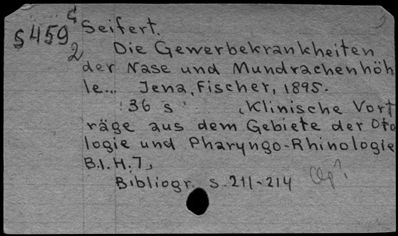 S459
2
Seifert.
Die Gewerbekrankheiten
der Nase und Mundrachenhöh
le... Jena, Fischer, 1895.
36 s (Klinische Vort
räge aus dem Gebiete der Oto
logie und Pharyngo-Rhinologie
B.I.H.7,
Bibliogr. s. 211-214